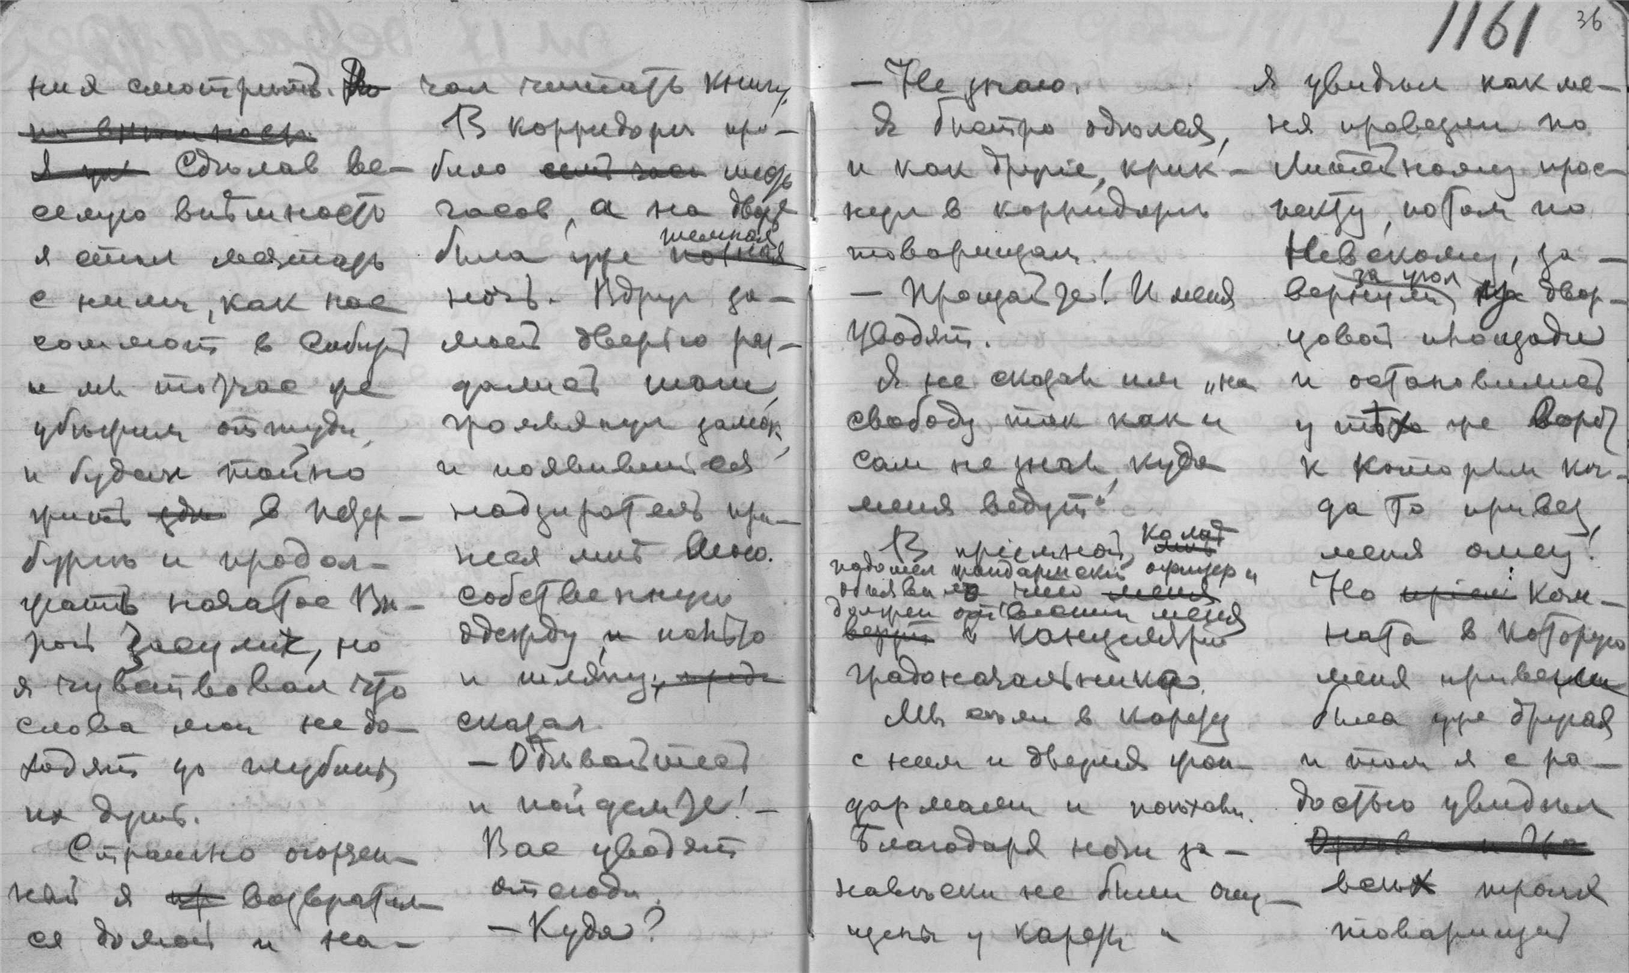 1161
36
ния смотрить.
Сдѣлав ве-
селую внѣшность
я стал мечтать
с ними, как нас
сошлют в Сибирь
и мы тотчас же
убѣжим оттуда,
и будем тайно
жить в Петер-
бургѣ и продол-
жать начатое Вѣ-
рой Засулич, но
я чувствовал что
слова мои не до-
ходят до глубины
их душ.
Страшно огорчен-
ный я возвратил-
ся домой и на-
чал читать книгу.
В корридорѣ про-
било шесть
часов, а на дворѣ
была уже темная
ночь. Вдруг за
моей дверью раз-
дались шаги,
громыхнул замок,
и появившийся
надзиратель при-
нес мнѣ мою
собственную
одежду, и пальто
и шляпу,
сказал.
— Одѣвайтесь
и пойдемте! —
Вас уводят
отсюда.
— Куда?
— Не знаю.
Я быстро одѣлся,
и как другіе, крик-
нул в корридорѣ
товарищам.
— Прощайте! И меня
уводят.
Я не сказал им „на
свободу" так как и
сам не знал, куда
меня ведут.
В пріемной,
подошел жандармскій офицер и
объявил что
должен отвезти меня
в канцелярію
градоначальника.
Мы сѣли в карету
с ним и двумя жан-
дармами и поѣхали.
Благодаря ночи за-
навѣски не были опу-
щены у кареты и
я увидѣл как ме-
ня провезли по
Литейному прос-
пекту, потом по
Невскому, за-
вернули за угол двор-
цовой площади
и остановились
у тѣх же ворот
к которым ког-
да то привез
меня отец!
Но ком-
ната в которую
меня привели
была уже другая
и там я с ра-
достью увидѣл
всѣх троих
товарищей